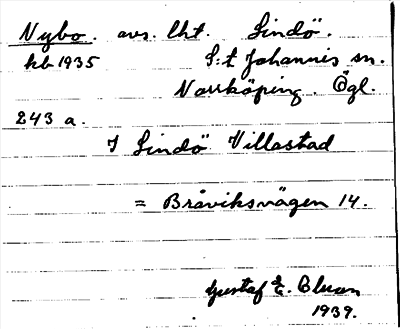 Nybo. avs. lht. Lindö.
kb 1935 S:t Johannis sn.
Norrköping. Ögl.
243 a.
I Lindö Villastad
= Bråviksvägen 14.
Gustaf E. Clason
1939.